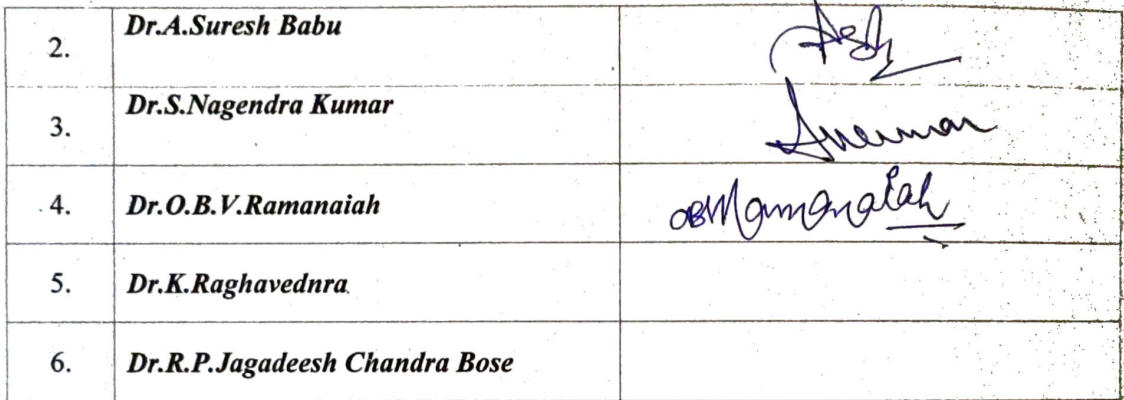 2. Dr.A.Suresh Babu
3. Dr.S.Nagendra Kumar
4. Dr.O.B.V.Ramanaiah OBVRamanaiah
5. Dr.K.Raghavednra
6. Dr.R.P.Jagadeesh Chandra Bose